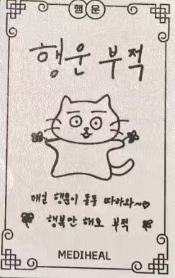 행운
행운 부적
매일 행운이 통통 따라와~♡
행복만 해요 부적
MEDIHEAL